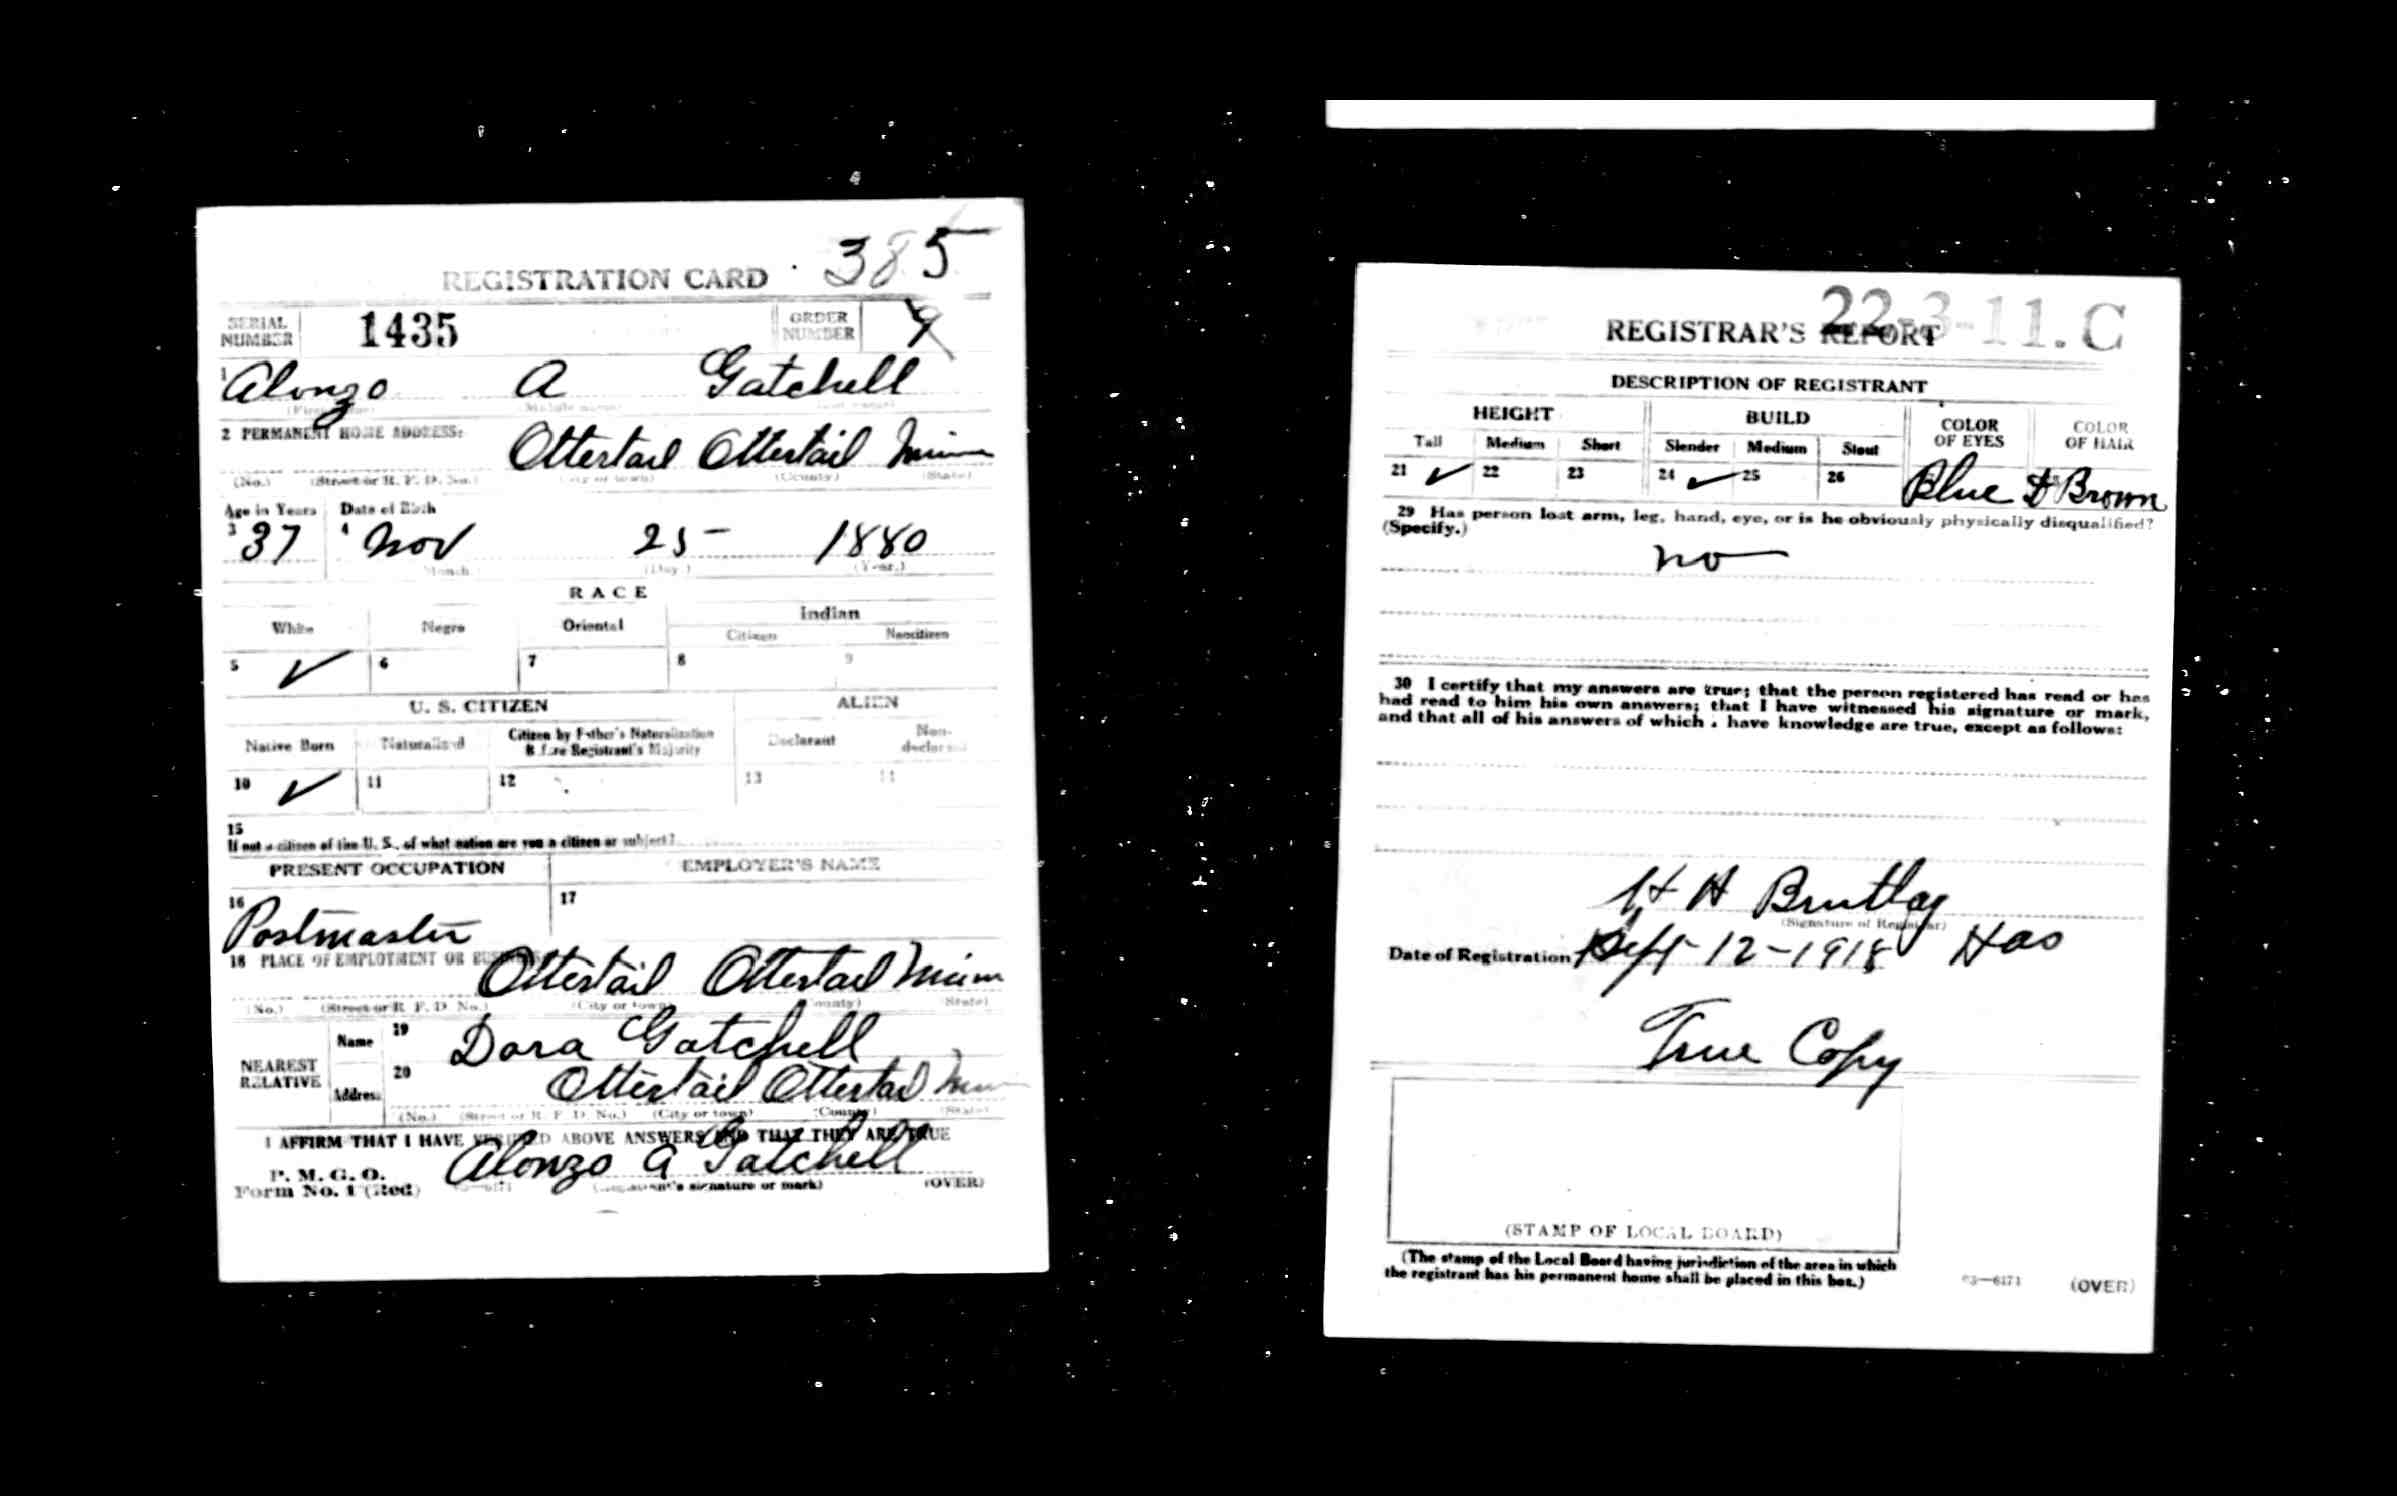 385
REGISTRATION CARD
SERIAL NUMBER 1435 ORDER NUMBER 9
1 Alonzo A Gatchell
(First name) (Middle name) (Last name)
2 PERMANENT HOME ADDRESS:
Ottertail Ottertail Minn
(No.) (Street or R. F. D. No.) (City or town) (County) (State)
Age in Years Date of Birth
3 37 4 Nov 25- 1880
(Month.) (Day.) (Year.)
RACE
White Negro Oriental Indian
Citizen Noncitizen
5 ✓ 6 7 8 9
U. S. CITIZEN ALIEN
Native Born Naturalized Citizen by Father's Naturalization Before Registrant's Majority Declarant Non-declarant
10 ✓ 11 12 13 14
15
If not a citizen of the U. S., of what nation are you a citizen or subject?
PRESENT OCCUPATION EMPLOYER'S NAME
16 Postmaster 17
18 PLACE OF EMPLOYMENT OR BUSINESS:
Ottertail Ottertail Minn
(No.) (Street or R. F. D. No.) (City or town) (County) (State)
NEAREST RELATIVE
Name 19 Dora Gatchell
Address 20 Ottertail Ottertail Minn
(No.) (Street or R. F. D. No.) (City or town) (County) (State)
I AFFIRM THAT I HAVE VERIFIED ABOVE ANSWERS AND THAT THEY ARE TRUE
P. M. G. O.
Form No. 1 (Red) Alonzo A Gatchell
03—6171 (Registrant's signature or mark) (OVER)
22-3-11. C
REGISTRAR'S REPORT
DESCRIPTION OF REGISTRANT
HEIGHT BUILD COLOR OF EYES COLOR OF HAIR
Tall Medium Short Slender Medium Stout
21 ✓ 22 23 24 ✓ 25 26 Blue D Brown
29 Has person lost arm, leg, hand, eye, or is he obviously physically disqualified?
(Specify.)
no
30 I certify that my answers are true; that the person registered has read or has
had read to him his own answers; that I have witnessed his signature or mark,
and that all of his answers of which I have knowledge are true, except as follows:
H H Brutlag
(Signature of Registrar)
Date of Registration Sept 12-1918
True Copy
(STAMP OF LOCAL BOARD)
(The stamp of the Local Board having jurisdiction of the area in which
the registrant has his permanent home shall be placed in this box.)
03—6171 (OVER)